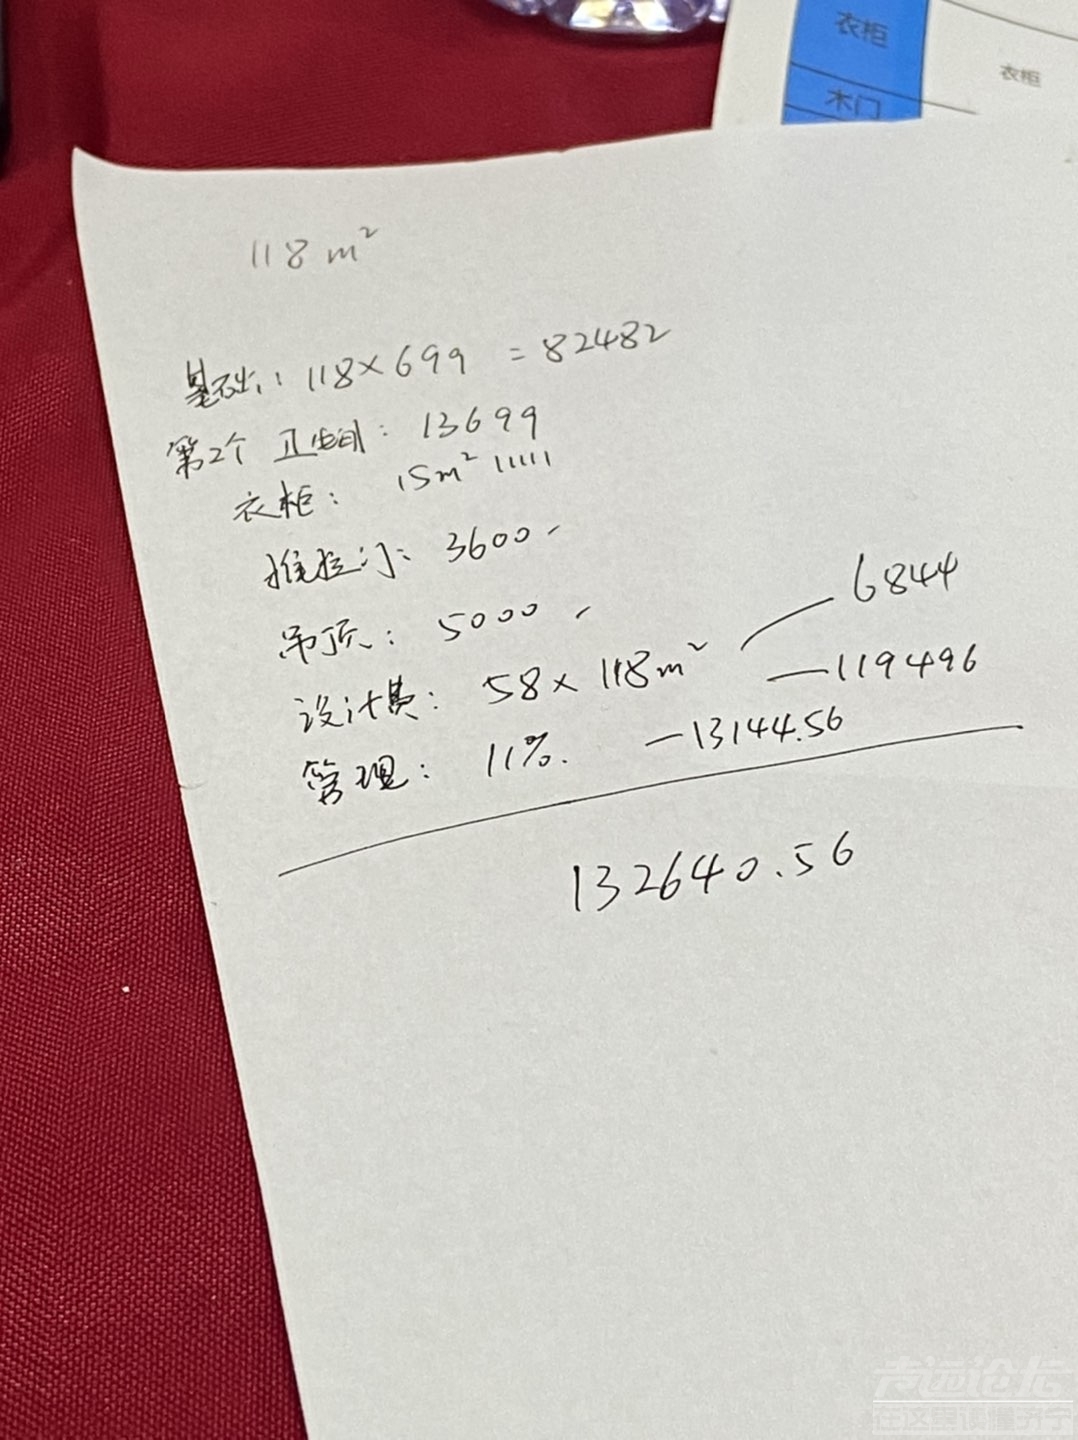 衣柜
衣柜
木门
118 m²
基础: 118×699 =82482
第2个 卫生间: 13699
衣柜: 15m² 11111
推拉门: 3600
吊顶: 5000
设计费: 58×118m² 6844
—119496
管理: 11%. —13144.56
132640.56